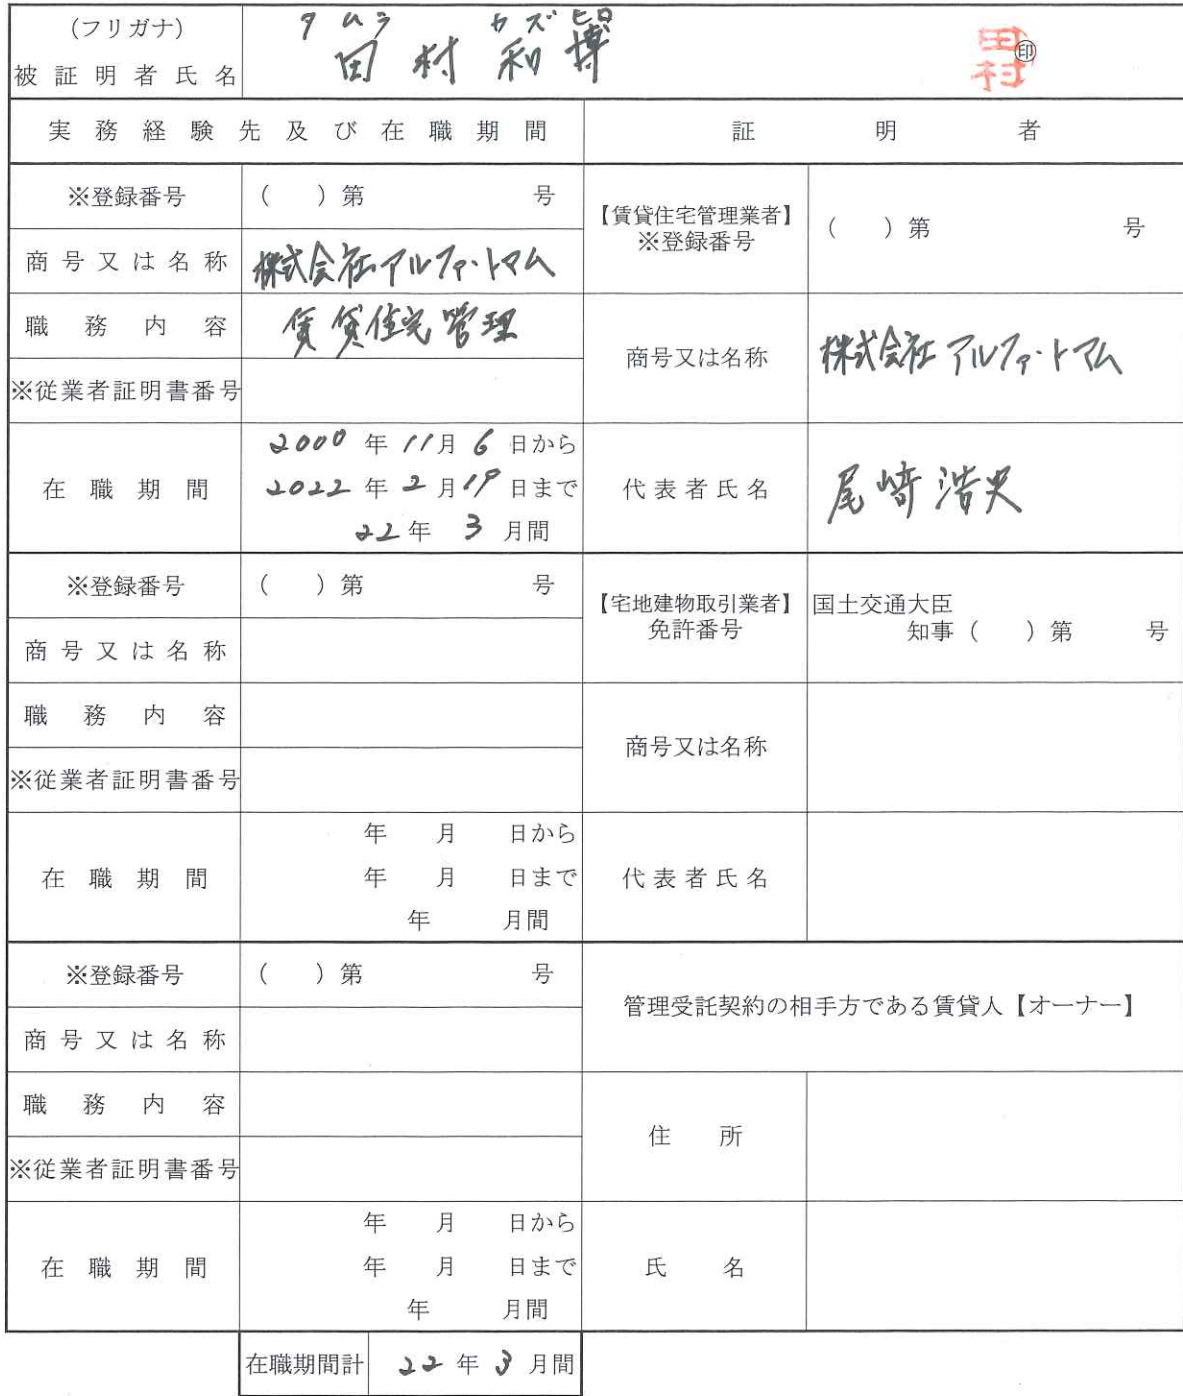 (フリガナ) タムラ カズヒロ
被証明者氏名 田村 和博 ㊞ 田村
実務経験先及び在職期間 証明者
※登録番号 ( )第 号
【賃貸住宅管理業者】
※登録番号 ( )第 号
商号又は名称 株式会社アルファ・トマム
職務内容 賃貸住宅管理
商号又は名称 株式会社アルファ・トマム
※従業者証明書番号
在職期間 2000年11月6日から
2022年2月19日まで
22年3月間
代表者氏名 尾崎浩史
※登録番号 ( )第 号
【宅地建物取引業者】
免許番号
国土交通大臣
知事( )第 号
商号又は名称
職務内容
商号又は名称
※従業者証明書番号
在職期間 年 月 日から
年 月 日まで
年 月間
代表者氏名
※登録番号 ( )第 号
管理受託契約の相手方である賃貸人【オーナー】
商号又は名称
職務内容
住所
※従業者証明書番号
在職期間 年 月 日から
年 月 日まで
年 月間
氏名
在職期間計 22年3月間